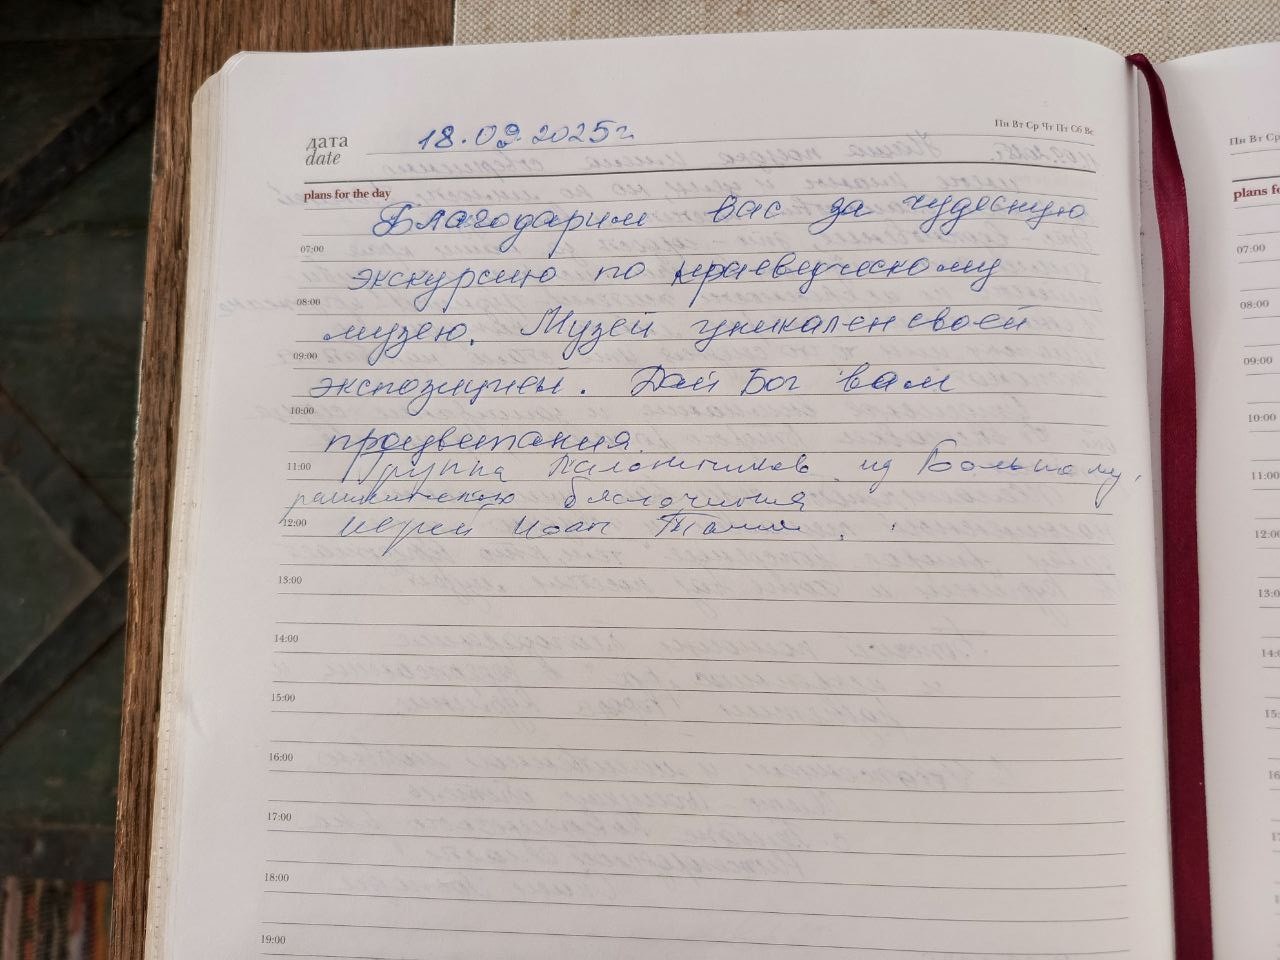 дата
date
18.09.2025г
Пн Вт Ср Чт Пт Сб Вс
plans for the day
Благодарим вас за чудесную
07:00
экскурсию по краеведческому
08:00
музею. Музей уникален своей
09:00
экспозицией. Дай Бог вам
10:00
процветания.
11:00
Группа паломников из Больному,
благочиния
12:00
иерей Иоан
13:00
14:00
15:00
16:00
17:00
18:00
19:00
Пн Вт Ср
plans fo
07:00
08:00
09:00
10:00
11:00
12:00
13:0
14:
15:
16